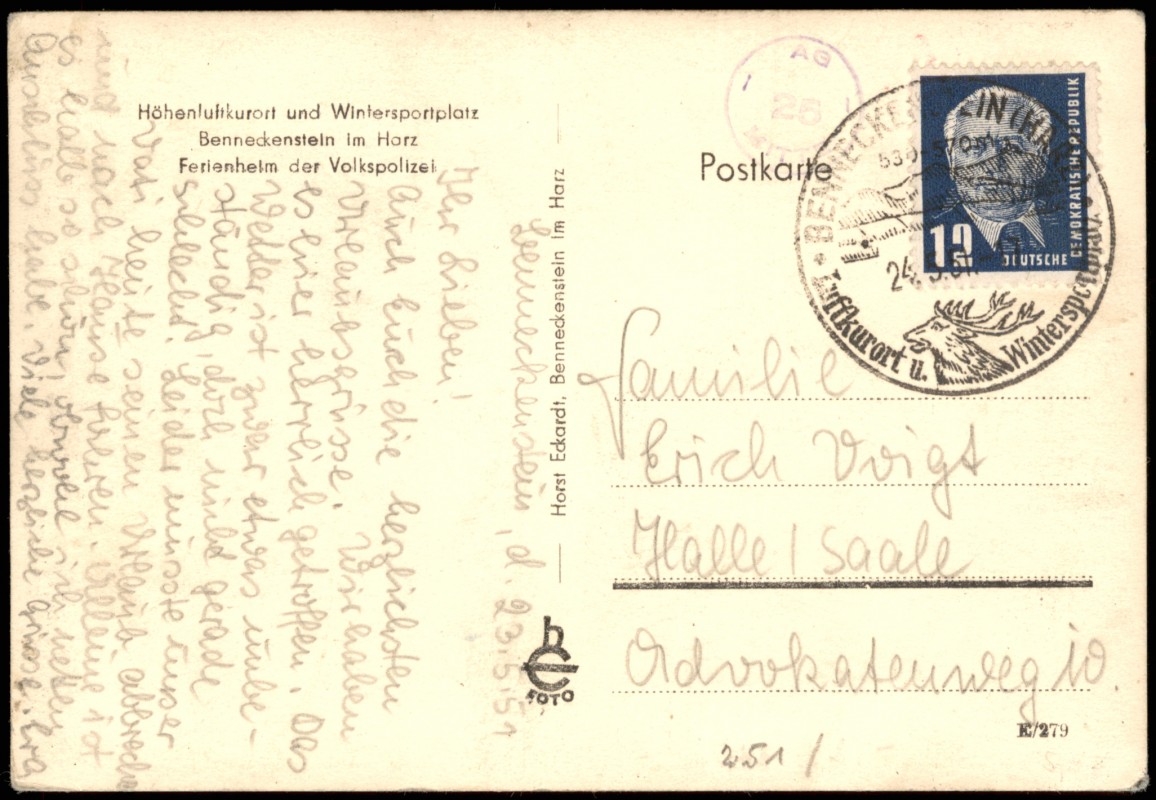 Höhenluftkurort und Wintersportplatz
Benneckenstein im Harz
Ferienheim der Volkspolizei
Benneckenstein, d. 23.5.51
Ihr Lieben!
Auch Euch die herzlichsten
Urlaubsgrüsse. Wir haben
es hier herrlich getroffen. Das
Wetter ist zwar etwas unbe-
ständig, doch nicht gerade
schlecht. Leider musste unser
Vati heute seinen Urlaub abbrechen
und nach Hause fahren. Alleine ist
es halb so schön, obwohl ich netten
Anschluss habe. Viele herzliche Grüsse
Horst Eckardt, Benneckenstein im Harz
he
FOTO
Postkarte
AG
25
BENNECKENSTEIN (HARZ)
24.5.51
Luftkurort u. Wintersportplatz
12
DEUTSCHE
DEMOKRATISCHE REPUBLIK
Familie
Erich Voigt
Halle/Saale
Advokatenweg 10.
E/279
251/